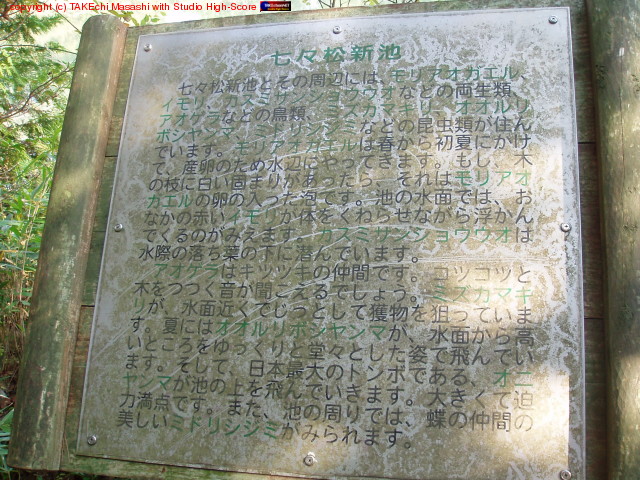 Copyright (c) TAKEchi Masashi with Studio High-Score
七々松新池
七々松新池とその周辺には、モリアオガエル、
イモリ、カスミサンショウウオなどの両生類、
アオゲラなどの鳥類、ミズカマキリ、オオルリ
ボシヤンマ、ミドリシジミなどの昆虫類が住ん
でいます。モリアオガエルは春から初夏にかけ
て、産卵のため水辺にやってきます。もし、木
の枝に白い固まりがあったら、それはモリアオ
ガエルの卵の入った泡です。池の水面では、お
なかの赤いイモリが体をくねらせながら浮かん
でくるのがみえます。カスミサンショウウオは
水際の落ち葉の下に潜んでいます。
アオゲラはキツツキの仲間です。コツコツと
木をつつく音が聞こえるでしょう。ミズカマキ
リが水面近くでじっとして獲物を狙っていま
す。夏にはオオルリボシヤンマが、水面から高い
ところをゆっくりと堂々とした姿で飛んで
います。そして日本最大のトンボであるオニ
ヤンマが池の上を
力満点です。また、池の周りでは、蝶の仲間の
美しいミドリシジミがみられます。